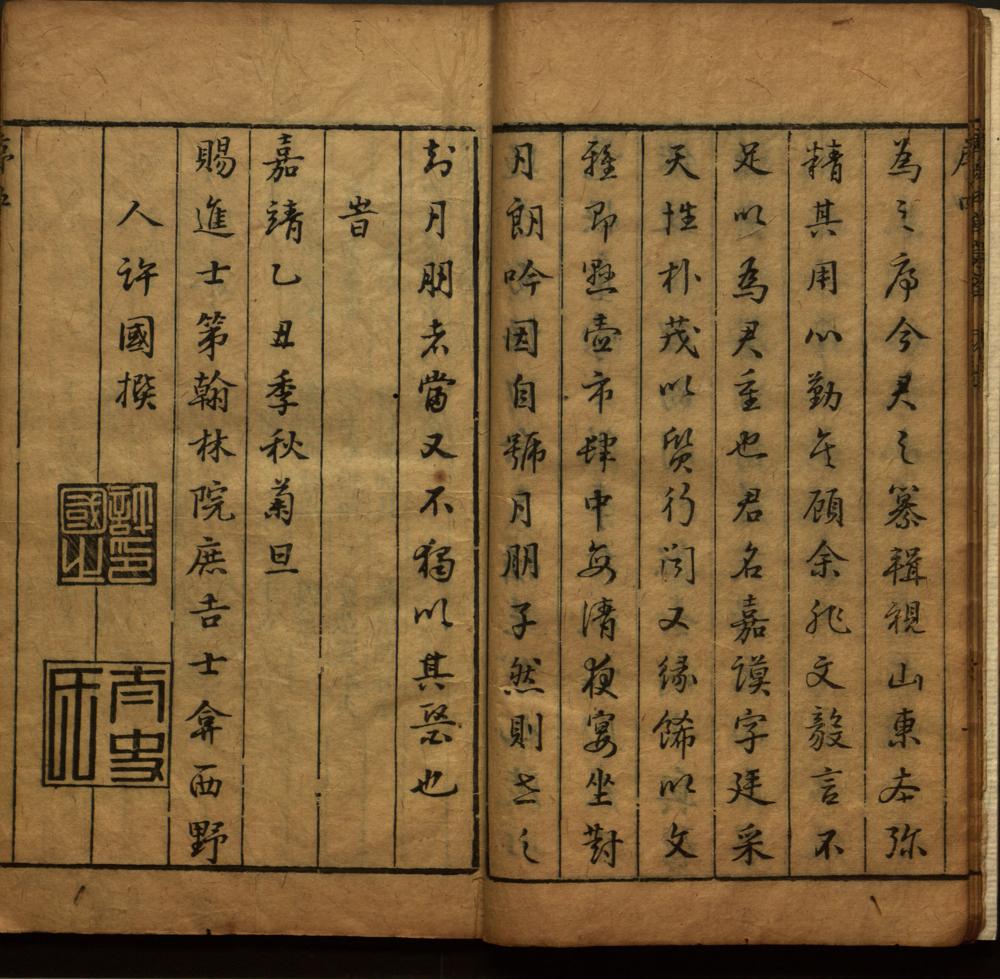 為之序今君之纂輯視山東本弥
精其用心勤矣顧余非文毅言不
足以為君重也君名嘉謨字廷采
天性朴茂以質行聞又緣飾以文
雅即懸壺市肆中每清夜宴坐對
月朗吟因自號月朋子然則世之
封月朋者當又不獨以其醫也
旹
嘉靖乙丑季秋菊旦
賜進士第翰林院庶吉士弇西野
人許國撰
許國之印
太史氏